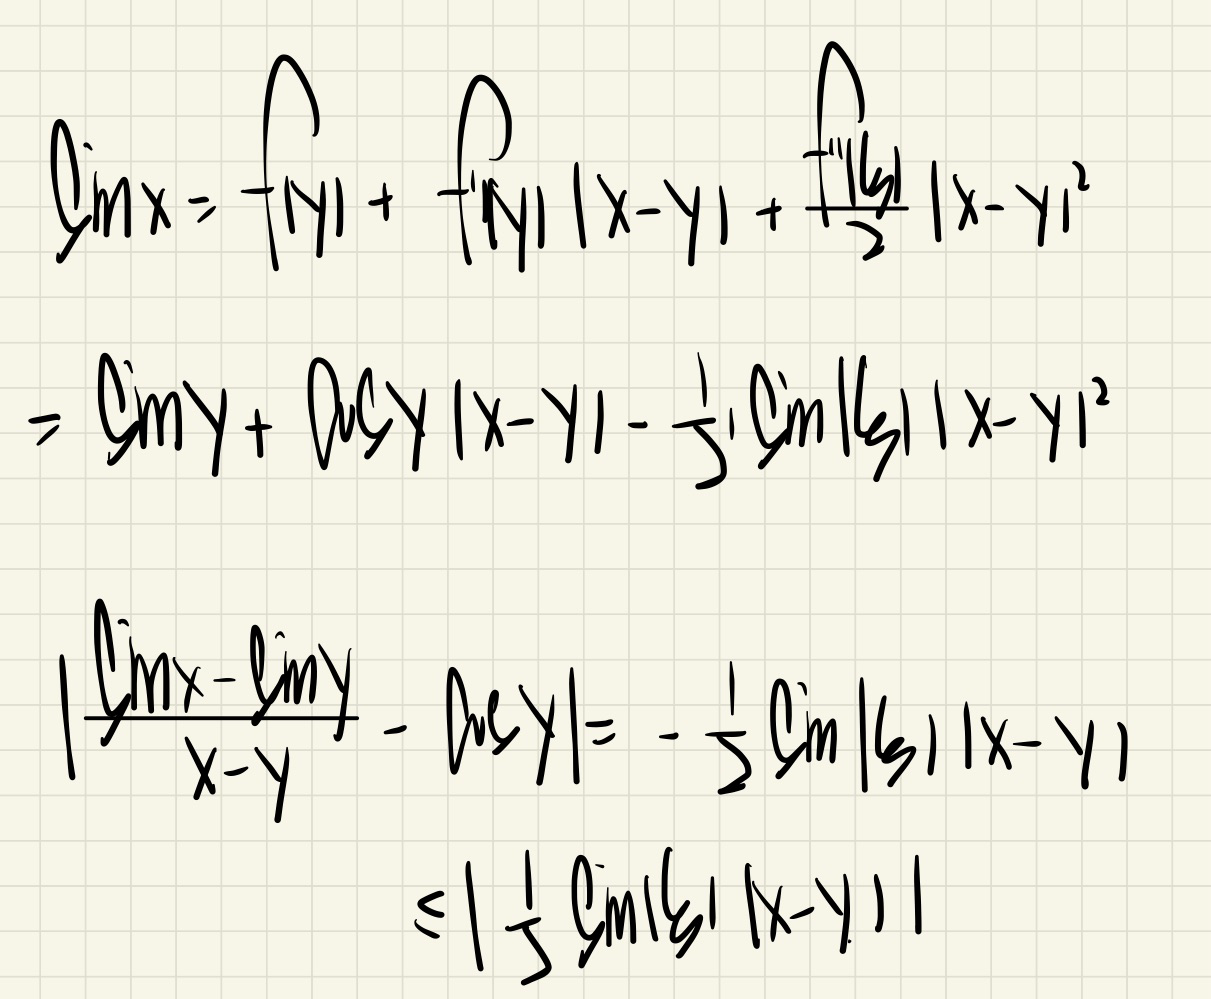 sin x = f(y) + f'(y)(x-y) + f''(ξ)/2 (x-y)²
= sin y + cos y (x-y) - 1/2 sin(ξ)(x-y)²
| (sin x - sin y)/(x-y) - cos y | = - 1/2 sin(ξ)(x-y)
≤ | 1/2 sin(ξ)(x-y) |